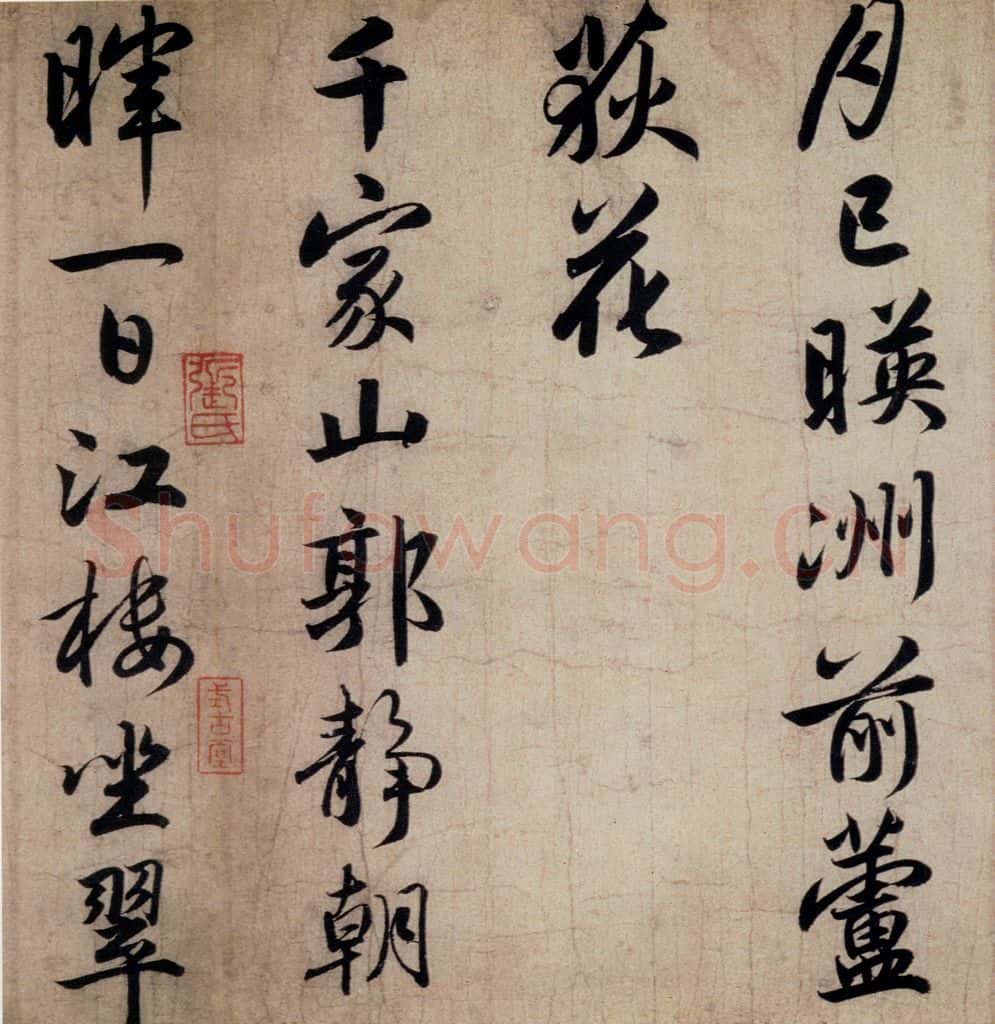 月已暎洲前蘆
荻花
千家山郭静朝
暉一日江楼坐翠
Shufawang.cn